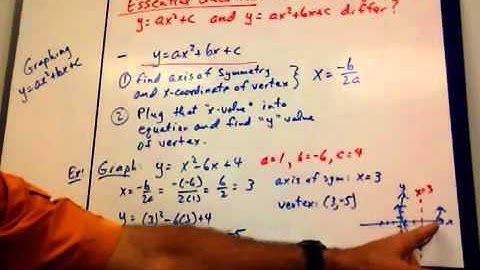 Essential
y=ax²+c and y=ax²+bx+c differ?
Graphing
y=ax²+bx+c
- y=ax²+bx+c
① find axis of symmetry
and x-coordinate of vertex
x = -b/2a
② Plug that "x-value" into
equation and find "y" value
of vertex.
Ex: Graph: y = x²-6x+4
a=1, b=-6, c=4
x = -b/2a = -(-6)/2(1) = 6/2 = 3
axis of sym: x=3
vertex: (3,-5)
y = (3)²-6(3)+4
x=3